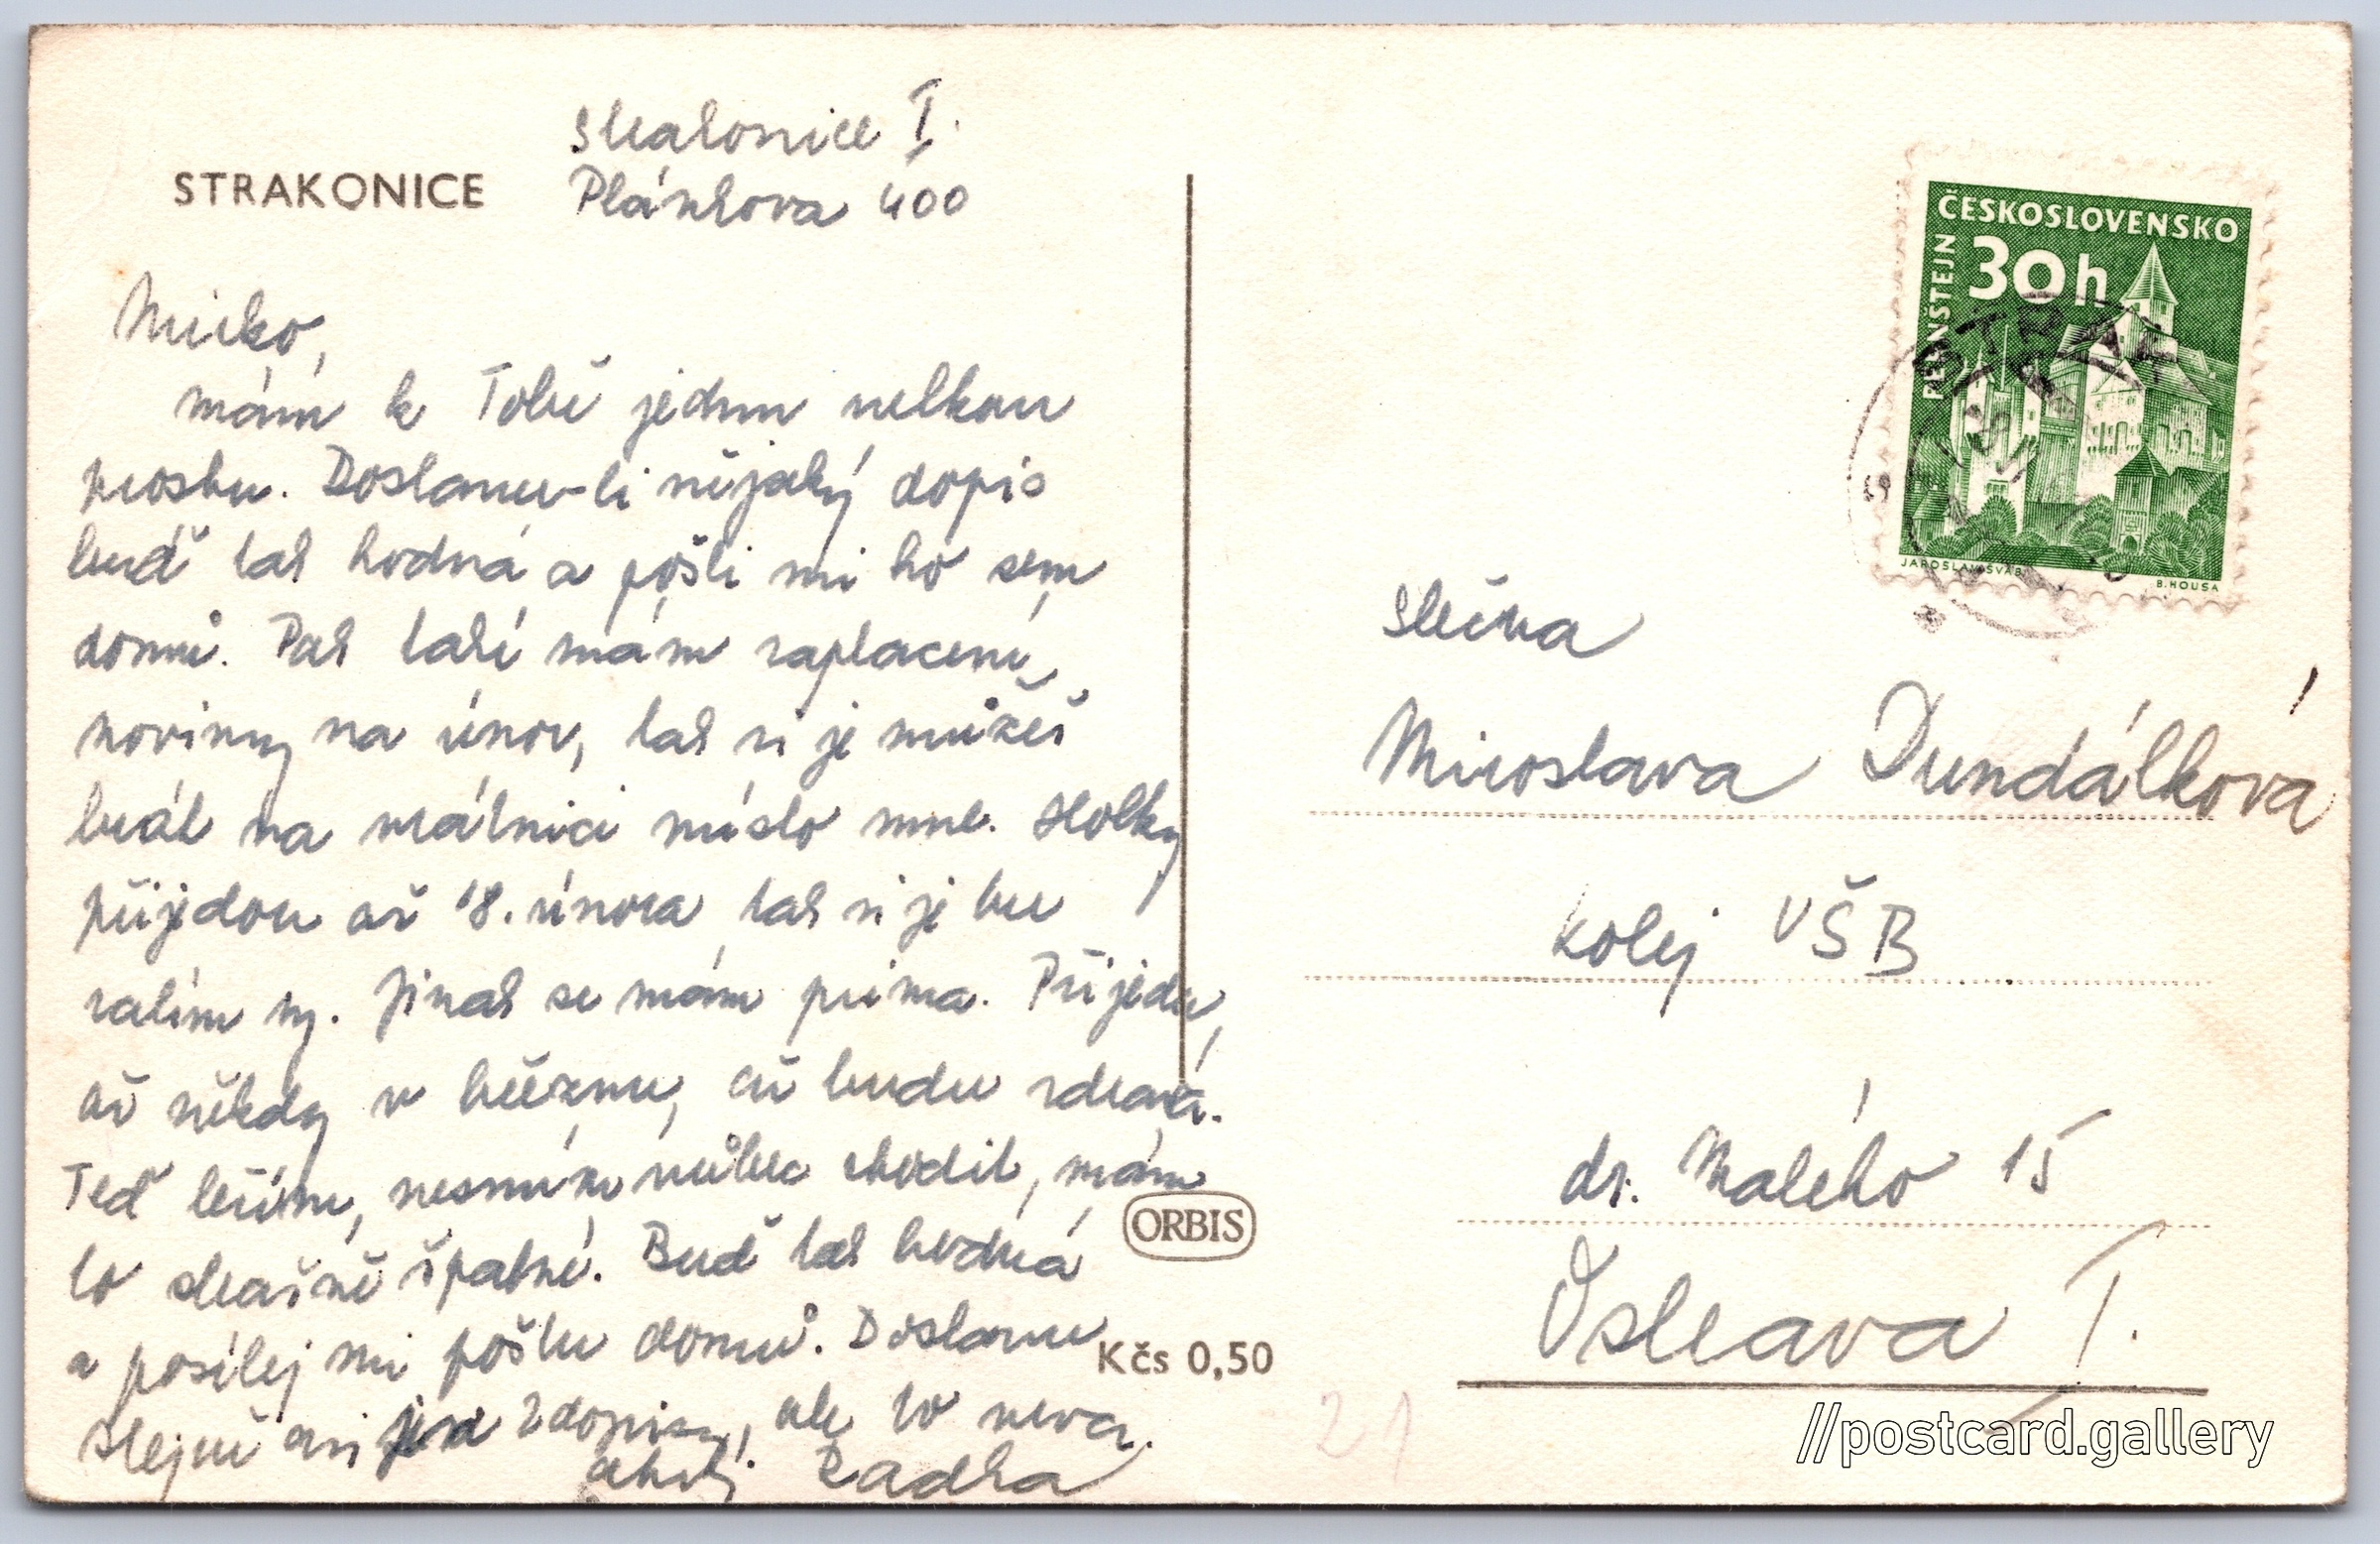 STRAKONICE
Strakonice I.
Plánkova 400
Mirko,
mám k Tobě jednu velkou
prosbu. Dostanu-li nějaký dopis
buď tak hodná a pošli mi ho sem
domů. Pak také mám zaplacené
noviny na únor, tak si je můžeš
brát na vrátnici místo mne. Holky
přijedou až 18. února tak si je ber
zatím ty. Jinak se mám prima. Přijedu,
až někdy v březnu, až budu zdravá.
Teď ležím, nesmím vůbec chodit, mám
to strašně špatné. Buď tak hodná
a posílej mi poštu domů. Dostanu
stejně asi jen 2 dopisy, ale to neva.
ahoj Radka
ORBIS
Kčs 0,50
ČESKOSLOVENSKO
30h
PERNŠTEJN
JAROSLAV ŠVÁB
B. HOUSA
STRAK
Slečna
Miroslava Dundálková
kolej VŠB
dr. Malého 15
Ostrava I.
21
//postcard.gallery